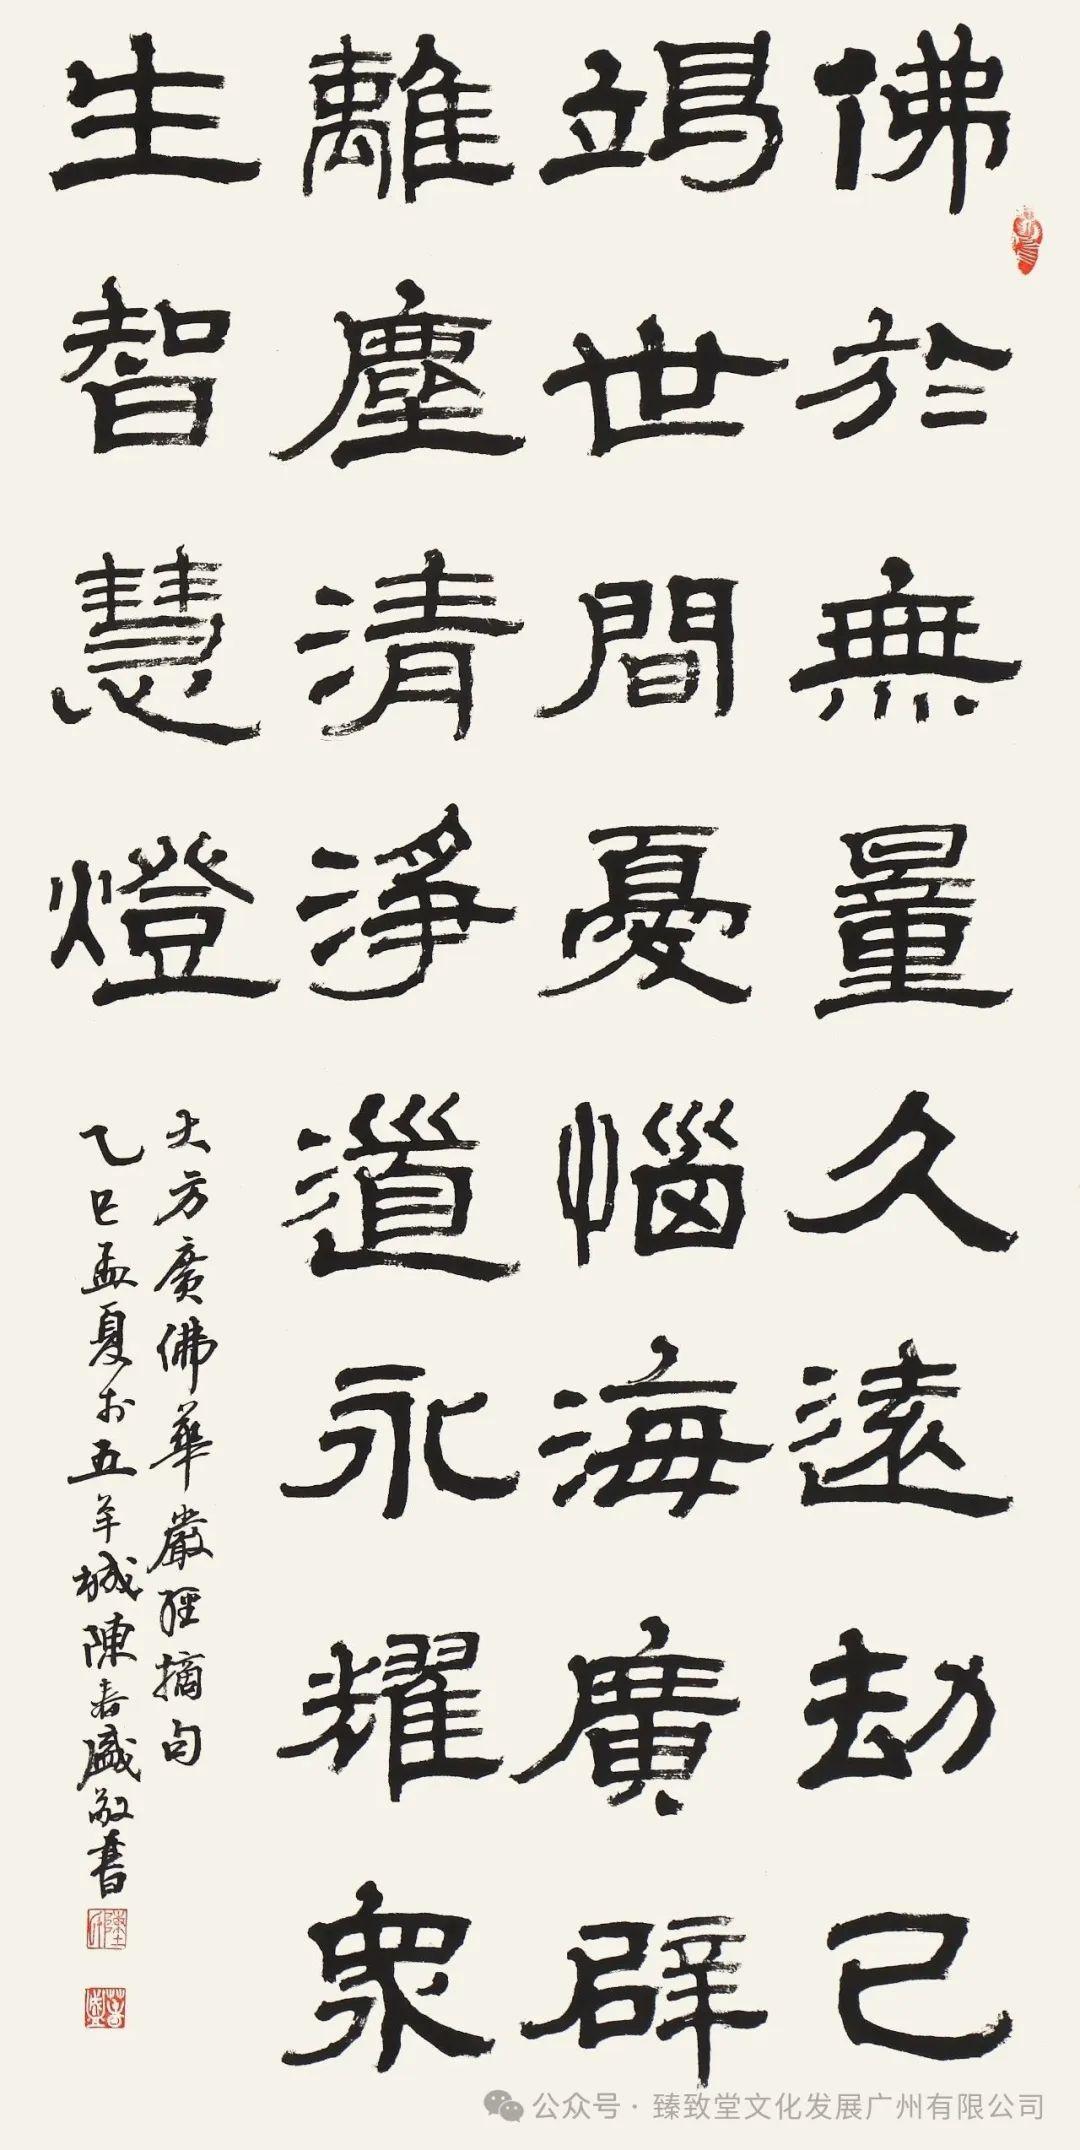 佛於無量久遠劫已
竭世間憂惱海廣辟
離塵清淨道永耀眾
生智慧燈
大方廣佛華嚴經摘句
乙巳孟夏於五羊城陳春盛敬書
春盛
公众号·臻致堂文化发展广州有限公司